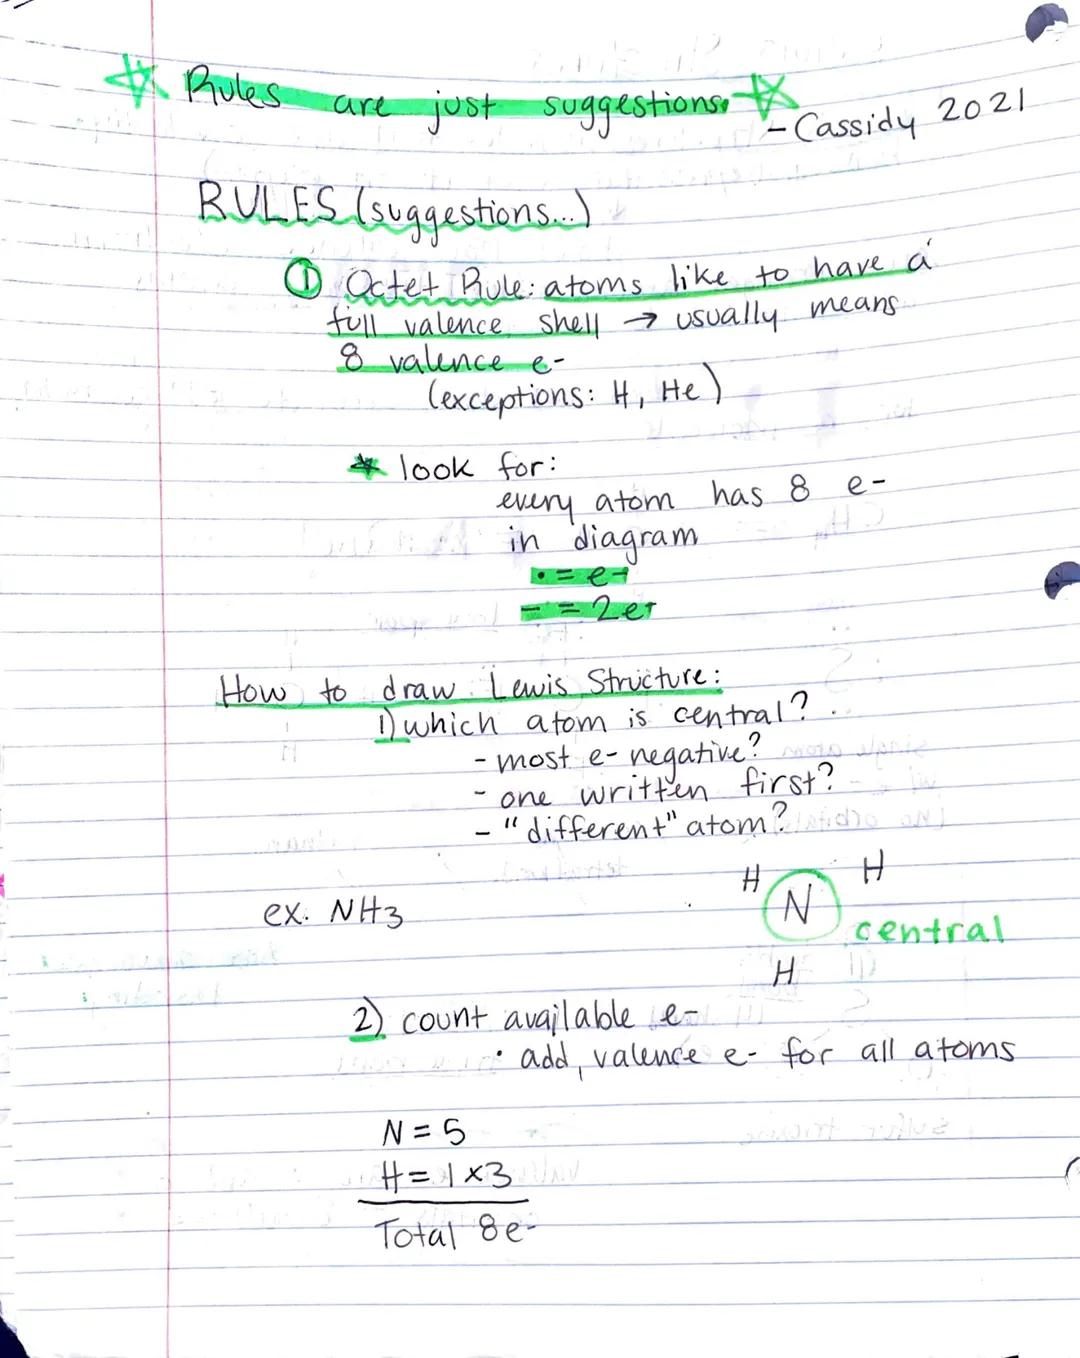 Rules are just suggestions.
- Cassidy 2021
RULES (suggestions...)
① Octet Rule: atoms like to have a
full valence shell → usually means
8 valence e-
(exceptions: H, He)
* look for:
every atom has 8 e-
in diagram
• = e-
- = 2e-
How to draw Lewis Structure:
1) which atom is central?
- most e- negative?
- one written first?
- "different" atom?
H H
ex. NH3 N
central
H
2) count available e-
• add valence e- for all atoms
N = 5
H = 1 x3
Total 8e-